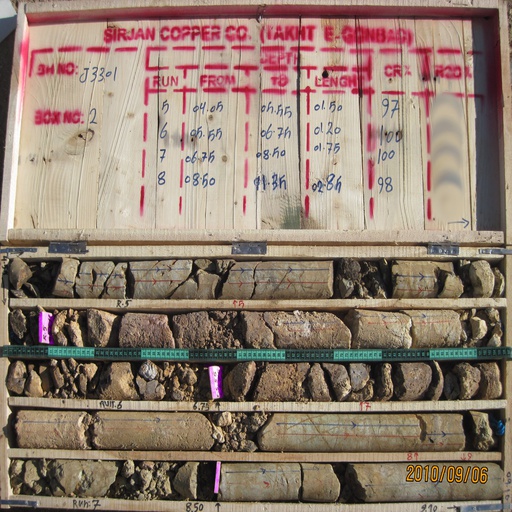 SIRJAN COPPER CO. (TAKHT E-GONBAD)
DEPTH
BH NO: J3301 RUN FROM TO LENGH CR%
BOX NO: 2
5 04.05 05.55 01.50 97
6 05.55 06.75 01.20 100
7 06.75 08.50 01.75 100
8 08.50 11.35 02.85 98
R.5
RUN.6 6.75 17
RUN.7 8.50 9.10
2010/09/06